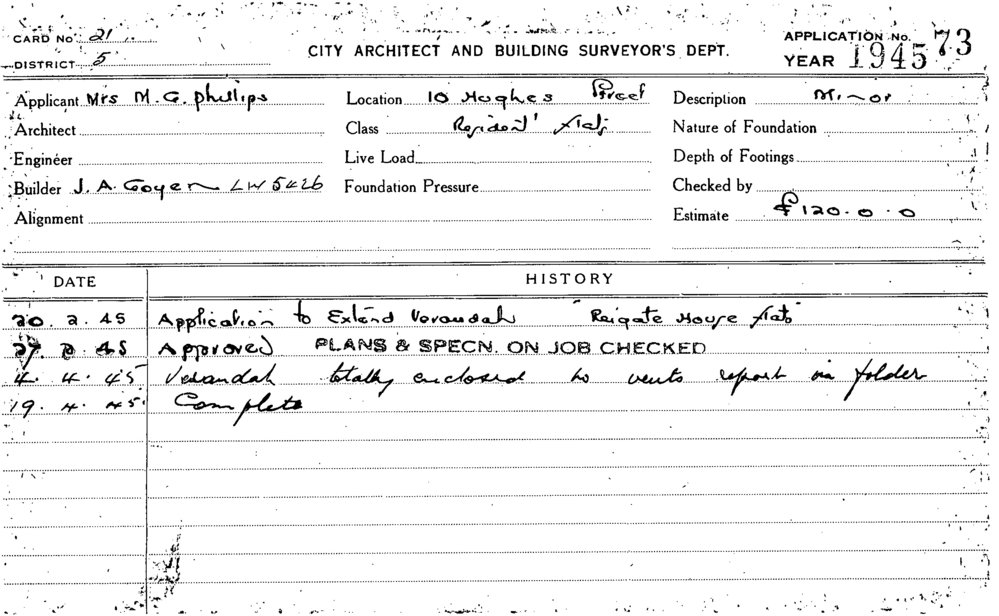 CARD No 21
DISTRICT 5
CITY ARCHITECT AND BUILDING SURVEYOR'S DEPT.
APPLICATION No. 73
YEAR 1945
Applicant Mrs M. G. Phillips
Location 10 Hughes Street
Description Minor
Architect
Class Resident' flats
Nature of Foundation
Engineer
Live Load
Depth of Footings
Builder J. A. Goyen LW 5426
Foundation Pressure
Checked by
Alignment
Estimate £120.0.0
DATE HISTORY
20. 2. 45 Application to Extend Verandah "Reigate House flats"
27. 2. 45 Approved PLANS & SPECN. ON JOB CHECKED
4. 4. 45 Verandah totally enclosed no vents report in folder
19. 4. 45. Complete